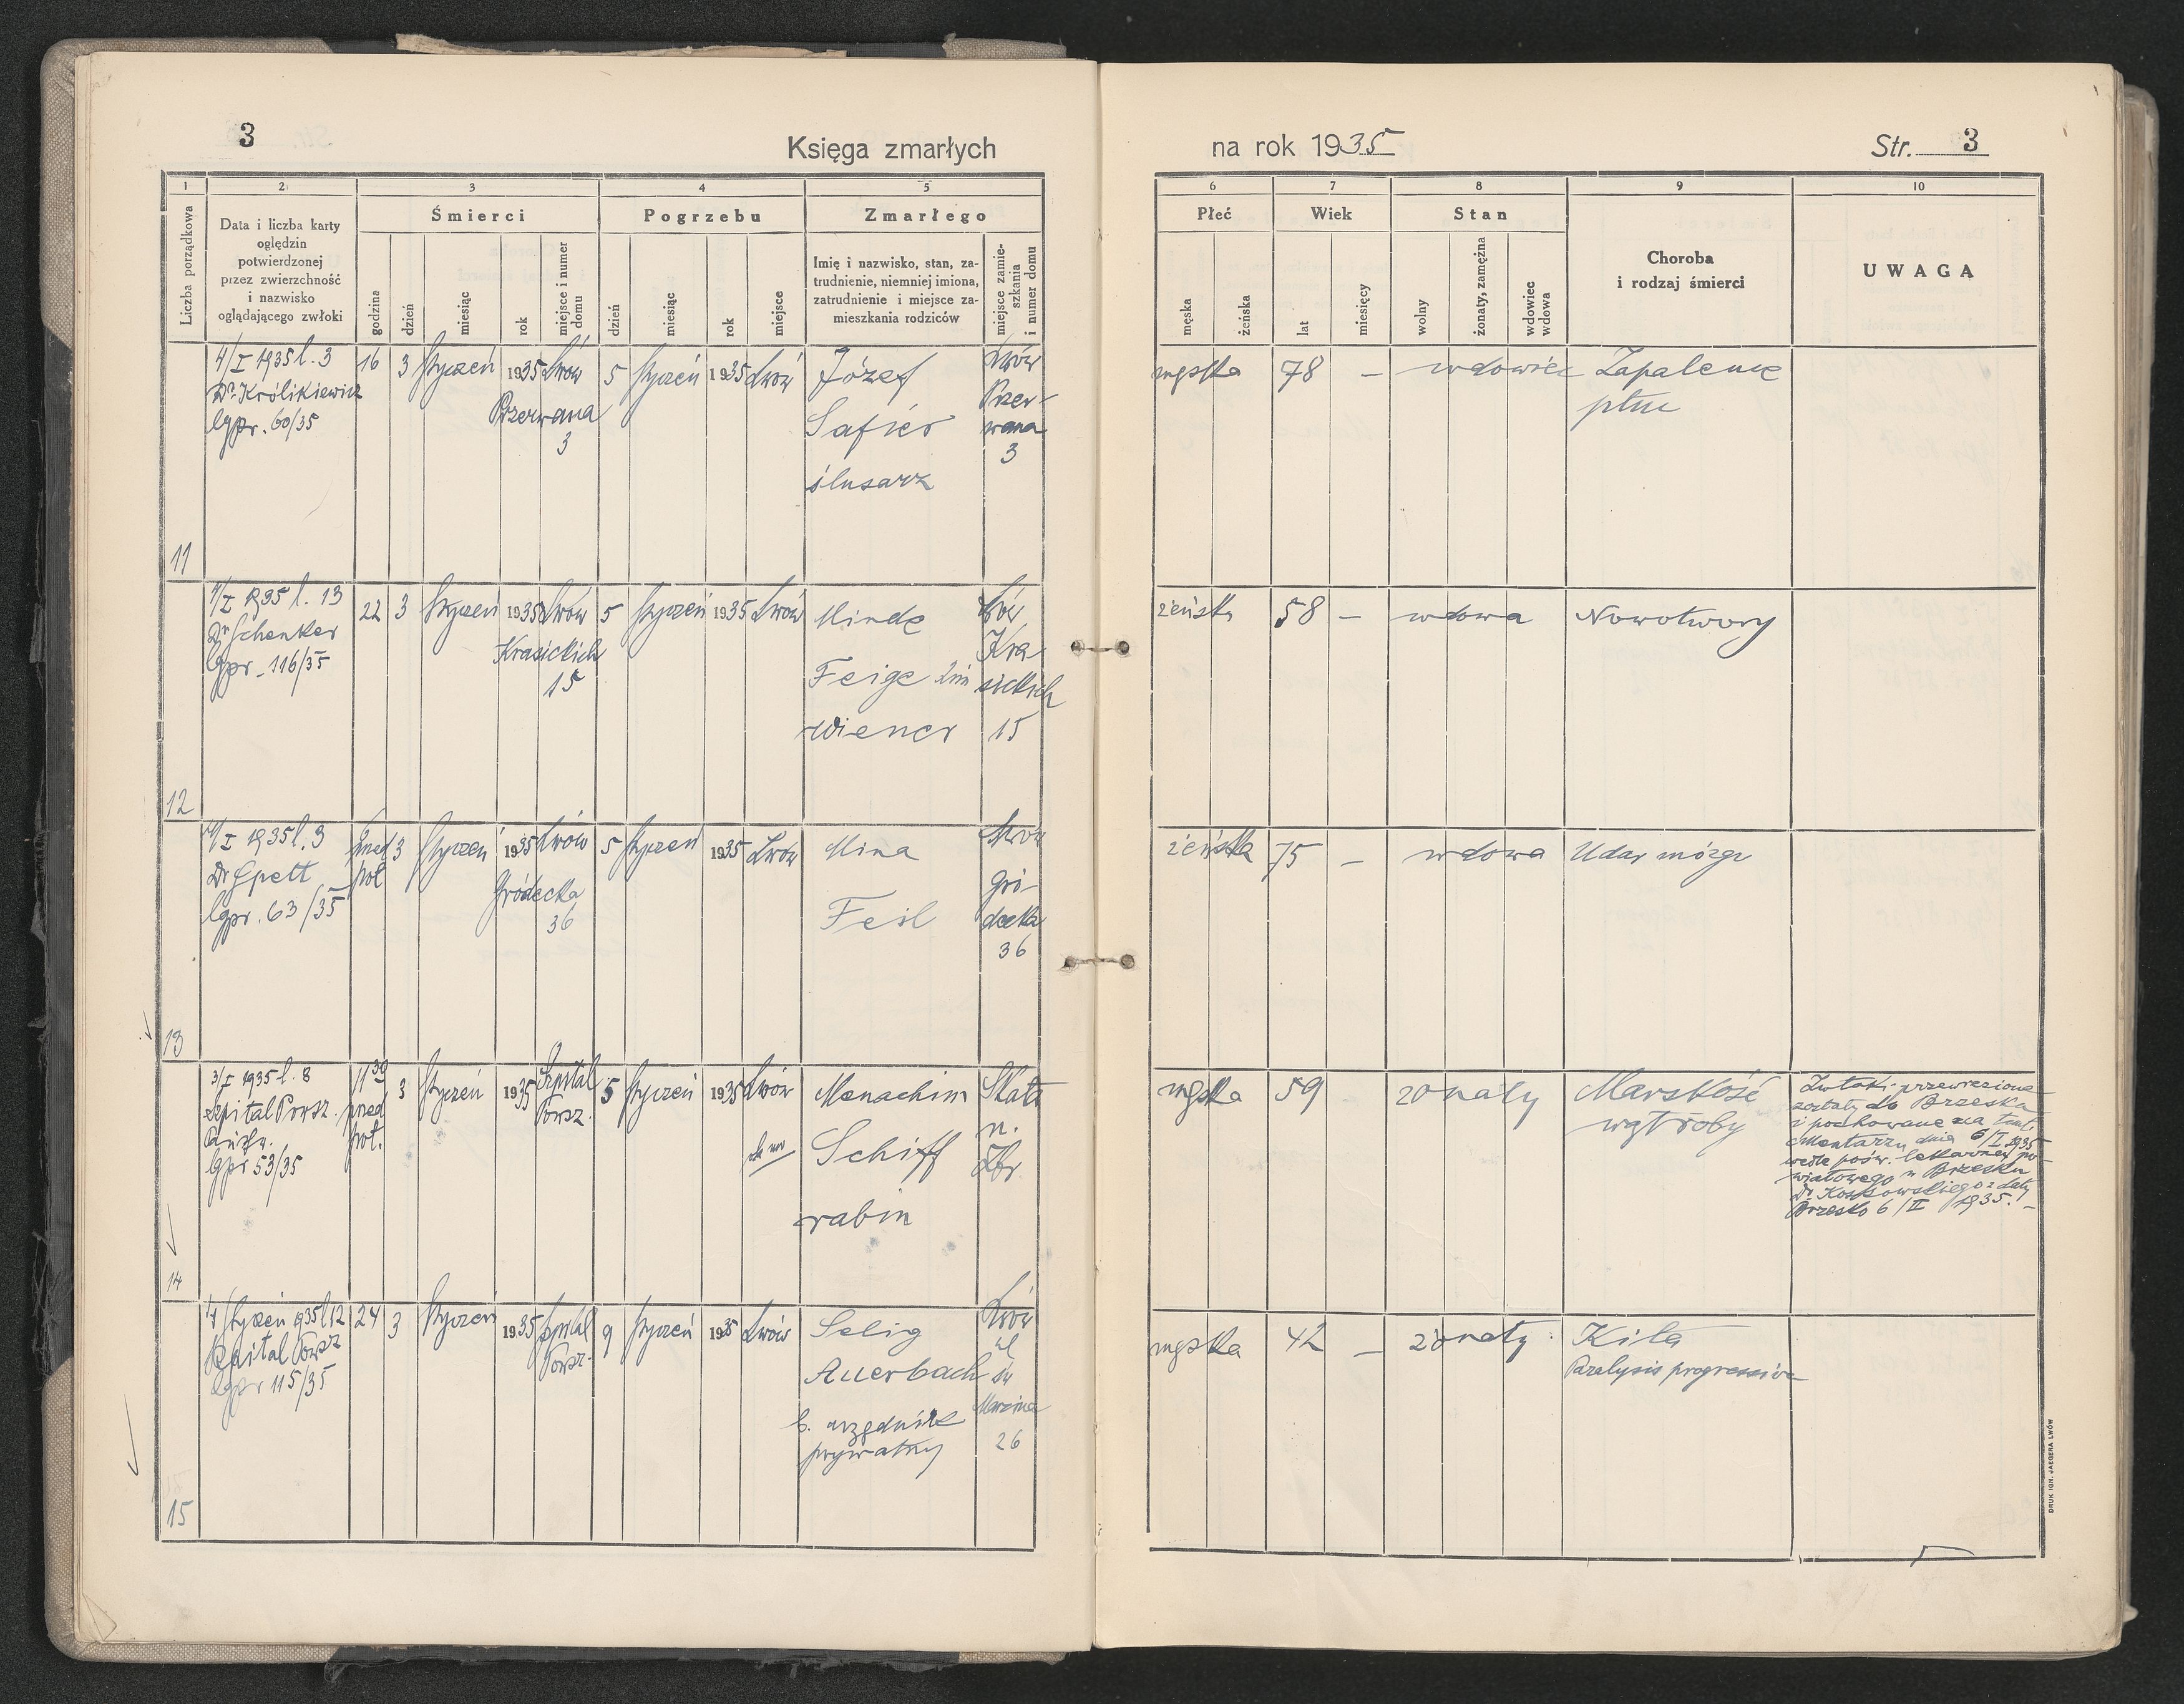 3
Księga zmarłych
na rok 1935
Str. 3
1 2 3 4 5
6 7 8 9 10
Liczba porządkowa
Data i liczba karty
oględzin
potwierdzonej
przez zwierzchność
i nazwisko
oglądającego zwłoki
Śmierci
godzina
dzień
miesiąc
rok
miejsce i numer
domu
Pogrzebu
dzień
miesiąc
rok
miejsce
Zmarłego
Imię i nazwisko, stan, za-
trudnienie, niemniej imiona,
zatrudnienie i miejsce za-
mieszkania rodziców
miejsce zamie-
szkania
i numer domu
Płeć
męska
żeńska
Wiek
lat
miesięcy
Stan
wolny
żonaty, zamężna
wdowiec
wdowa
Choroba
i rodzaj śmierci
UWAGA
11
4/I 1935 l. 3
Dr. Królikiewicz
lgpr. 60/35
16
3
Styczeń
1935
Lwów
Przerwana
3
5
Styczeń
1935
Lwów
Józef
Safier
ślusarz
Lwów
Przer-
wana
3
męska
78
–
wdowiec
Zapalenie
płuc
12
4/I 1935 l. 13
Dr Schenker
lgpr. 116/35
22
3
Styczeń
1935
Lwów
Krasickich
15
5
Styczeń
1935
Lwów
Minde
Feige 2im
Wiener
Lwów
Kra
sickich
15
żeńska
58
–
wdowa
Nowotwory
13
4/I 1935 l. 3
Dr Spett
lgpr. 63/35
przed
poł
3
Styczeń
1935
Lwów
Gródecka
36
5
Styczeń
1935
Lwów
Mina
Feil
Lwów
Gró-
decka
36
żeńska
75
–
wdowa
Udar mózgu
14
3/I 1935 l. 8
szpital Powsz.
lgpr 53/35
11 30
przed
poł.
3
Styczeń
1935
Szpital
Powsz.
5
Styczeń
1935
Lwów
Menachim
Schiff
rabin
Skałat
n.
Zbr.
męska
59
żonaty
Marskość
wątroby
Zwłoki przewiezione
zostały do Brzeska
i pochowane na tamt.
cmentarzu dnia 6/I 1935
wedle pośw. lekarza po-
wiatowego w Brzesku
Dr. Kossowskiego z daty
Brzesko 6/II 1935. –
15
4/Styczeń 1935 l 12
Szpital Powsz
lgpr 115/35
24
3
Styczeń
1935
Szpital
Powsz.
9
Styczeń
1935
Lwów
Selig
Auerbach
b. urzędnik
prywatny
Lwów
ul
św
Marcina
26
męska
42
–
żonaty
Kiła
Paralysis progressiva
DRUK IGN. JAEGERA LWÓW